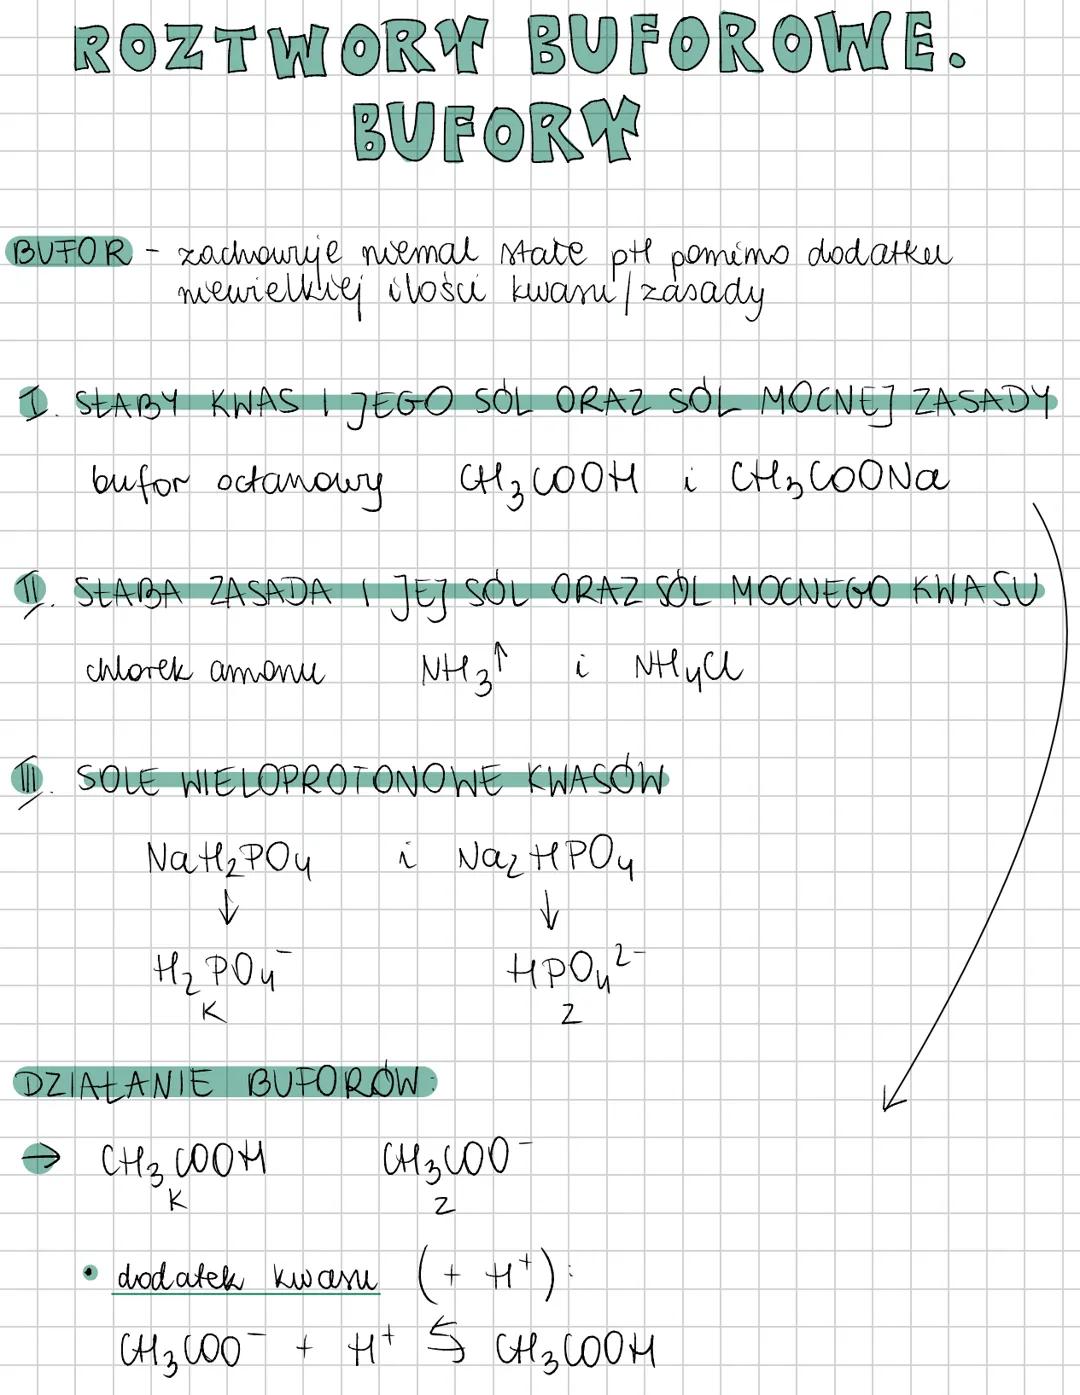 ROZTWORY BUFOROWE.
BUFORY
BUFOR - zachowuje niemal stałe pH pomimo dodatku
niewielkiej ilości kwasu/zasady
I. SŁABY KWAS I JEGO SÓL ORAZ SÓL MOCNEJ ZASADY
bufor octanowy CH₃COOH i CH₃COONa
II. SŁABA ZASADA I JEJ SÓL ORAZ SÓL MOCNEGO KWASU
chlorek amonu NH₃↑ i NH₄Cl
III. SOLE WIELOPROTONOWE KWASÓW
NaH₂PO₄ i Na₂HPO₄
↓ ↓
H₂PO₄⁻ HPO₄²⁻
K Z
DZIAŁANIE BUFORÓW:
→ CH₃COOH CH₃COO⁻
K Z
• dodatek kwasu (+ H⁺):
CH₃COO⁻ + H⁺ ⇆ CH₃COOH